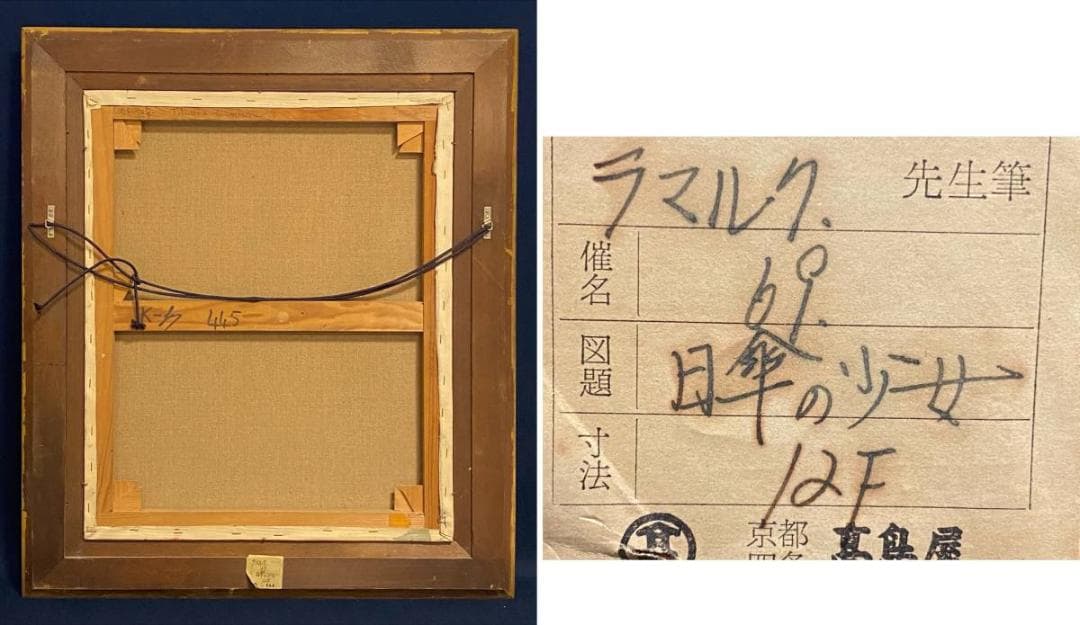 K-ク 445
ラマルク. 先生筆
催名
69.
図題 日傘の少女
寸法 12F
髙 京都 髙島屋
四条